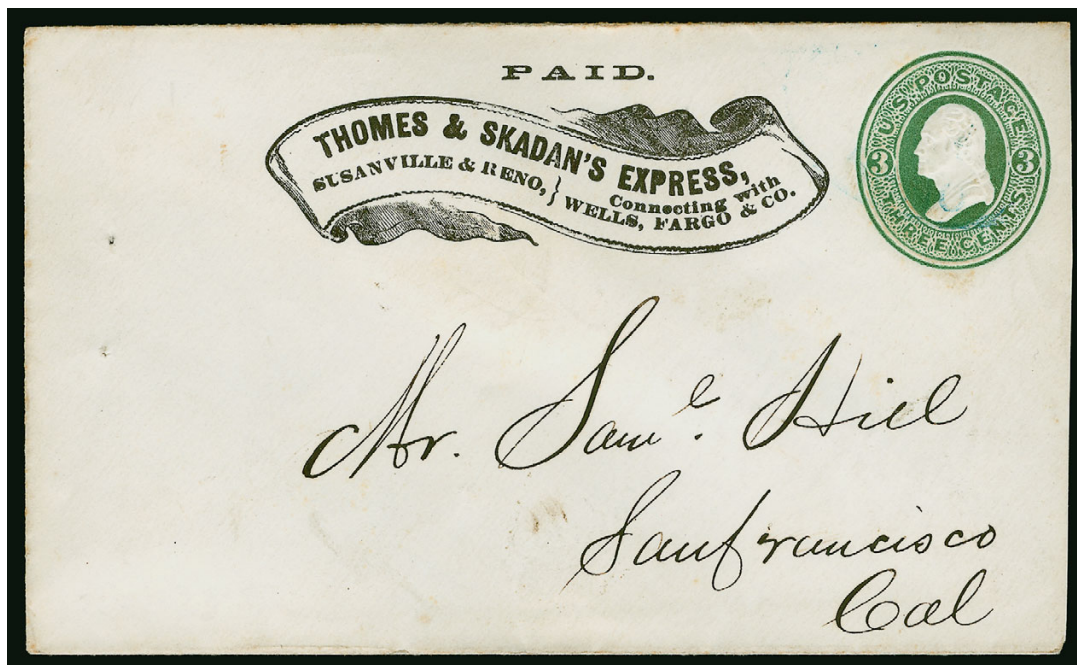 PAID.
THOMES & SKADAN'S EXPRESS,
SUSANVILLE & RENO, }
Connecting with
WELLS, FARGO & CO.
U.S. POSTAGE
3 3
THREE CENTS
Mr. Saml. Hill
San francisco
Cal